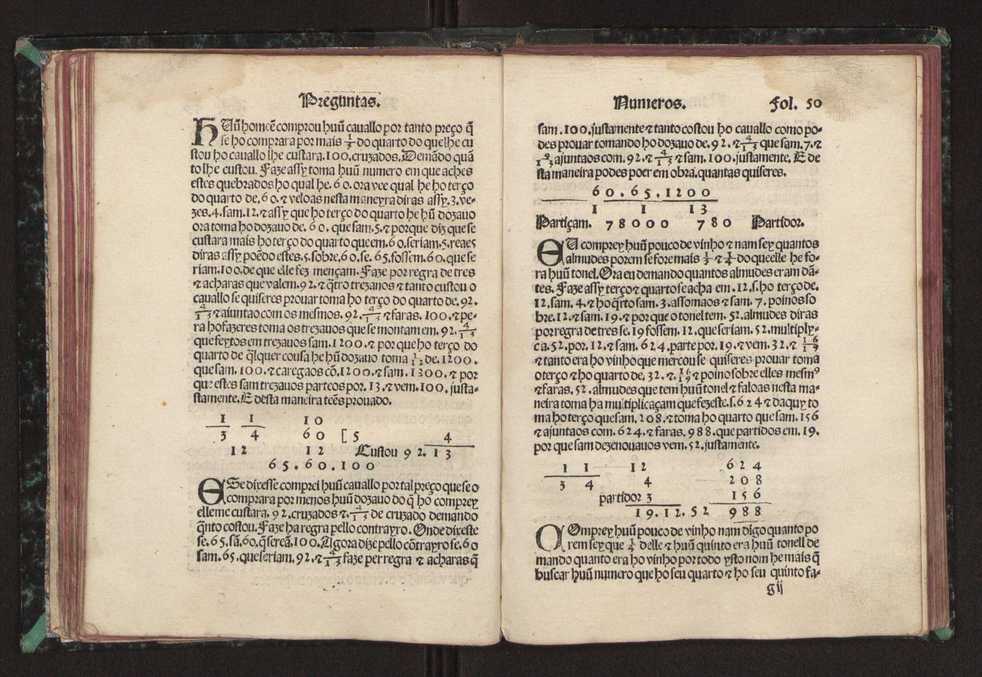 Preguntas.
HUũ homeẽ comprou huũ cauallo por tanto preço q̃
se ho comprara por mais 1/2 do quarto do que lhe cu
stou ho cauallo lhe custara.100.cruzados. Demãdo quã
to lhe custou. Faze assy toma huũ numero em que aches
estes quebrados ho qual he.60.ora vee qual he ho terço
do quarto de.60.⁊ veloas nesta maneyra diras assy.3.ve-
zes.4.sam.12.⁊ assy que ho terço do quarto he hũ dozauo
ora toma ho dozauo de.60.que sam.5.⁊ porque diz que se
custara mais ho terço do quarto que em.60.seriam.5.reaes
diras assy poẽdo estes.5.sobre.60.se.65.fossem.60.que se
riam.100.de que elle fez mençam. Faze por regra de tres
⁊ acharas que valem.92.⁊ q̃tro trezanos ⁊ tanto custou o
cauallo se quiseres prouar toma ho terço do quarto de.92.
4/13 ⁊ ajunta o com os mesmos.92.4/13 ⁊ faras.100.⁊ pe-
ra ho fazeres toma os trezauos que se montam em.92.4/13
que feytos em trezauos sam.1200.⁊ por que ho terço do
quarto de q̃lquer cousa he hũ dozauo toma 1/12 de.1200.
que sam.100.⁊ carega os cõ.1200.⁊ sam.1300.⁊ por
que estes sam trezauos parte os por.13.⁊ vem.100.justa-
stamente. E desta maneira tẽes prouado.
1 1 10
3 4 60 [5 4
12 12 Custou 92.13
65.60.100
ESe dixesse comprei huũ cauallo por tal preço que se o
comprara por menos huũ dozauo do q̃ ho comprey
elle me custara.92.cruzados ⁊.4/13 de cruzado demando
q̃nto costou. Faze ha regra pello contrayro. Onde dixeste
se.65.sã.60.q̃ serẽã.100. Agora dize pello cõtrayro se.60
sam.65.que seriam.92.⁊ 4/13 faze per regra ⁊ acharas q̃
Numeros. Fol. 50
sam.100.justamente ⁊ tanto costou ho cauallo como po-
des prouar tomando ho dozauo de.92.⁊ 4/13 que sam.7.⁊
9/13 ajuntaos com.92.⁊ 4/13 ⁊ sam.100.justamente. E de
sta maneira podes poer em obra.quantas quiseres.
60.65.1200
1 1 13
Partiçam. 78000 780 Partidor.
EU comprey huũ pouco de vinho ⁊ nam sey quantos
almudes porem se fore mais 1/3 ⁊ 1/4 do que elle he fo-
ra huũ tonel. Ora eu demando quantos almudes eram dã-
tes. Faze assy terço ⁊ quarto se acha em.12.s.ho terço de.
12.sam.4.⁊ ho q̃rto sam.3.assoma os ⁊ sam.7.poinos so
bre.12.⁊ sam.19.⁊ por que o tonel tem.52.almudes diras
por regra de tres se.19 fossem.12.que seriam.52.multiply-
ca.52.por.12.⁊ sam.624.parte por.19.⁊ vem.32.⁊ 16/19
⁊ tanto era ho vinho que mercou se quiseres prouar toma
o terço ⁊ ho quarto de.32.⁊ 16/19 ⁊ poino sobre elles mesmos
⁊ faras.52.almudes que tem huũ tonel ⁊ faloas nesta ma-
neira toma ha multiplicaçam que fezeste.s.624 ⁊ daquy to
ma ho terço que sam.208.⁊ toma ho quarto que sam.156
⁊ ajunta os com.624.⁊ faras.988.que partidos em.19.
por que sam dezenouauos vem.52.justamente.
1 1 12 624
3 4 4 208
partidor 3 156
19.12.52 988
COmprey huũ pouco de vinho nam digo quanto po
rem sey que 1/4 delle ⁊ huũ quinto era huũ tonell de
mando quanto era ho vinho por todo ysto nom he mais q̃
buscar huũ numero que ho seu quarto ⁊ ho seu quinto fa-
gij